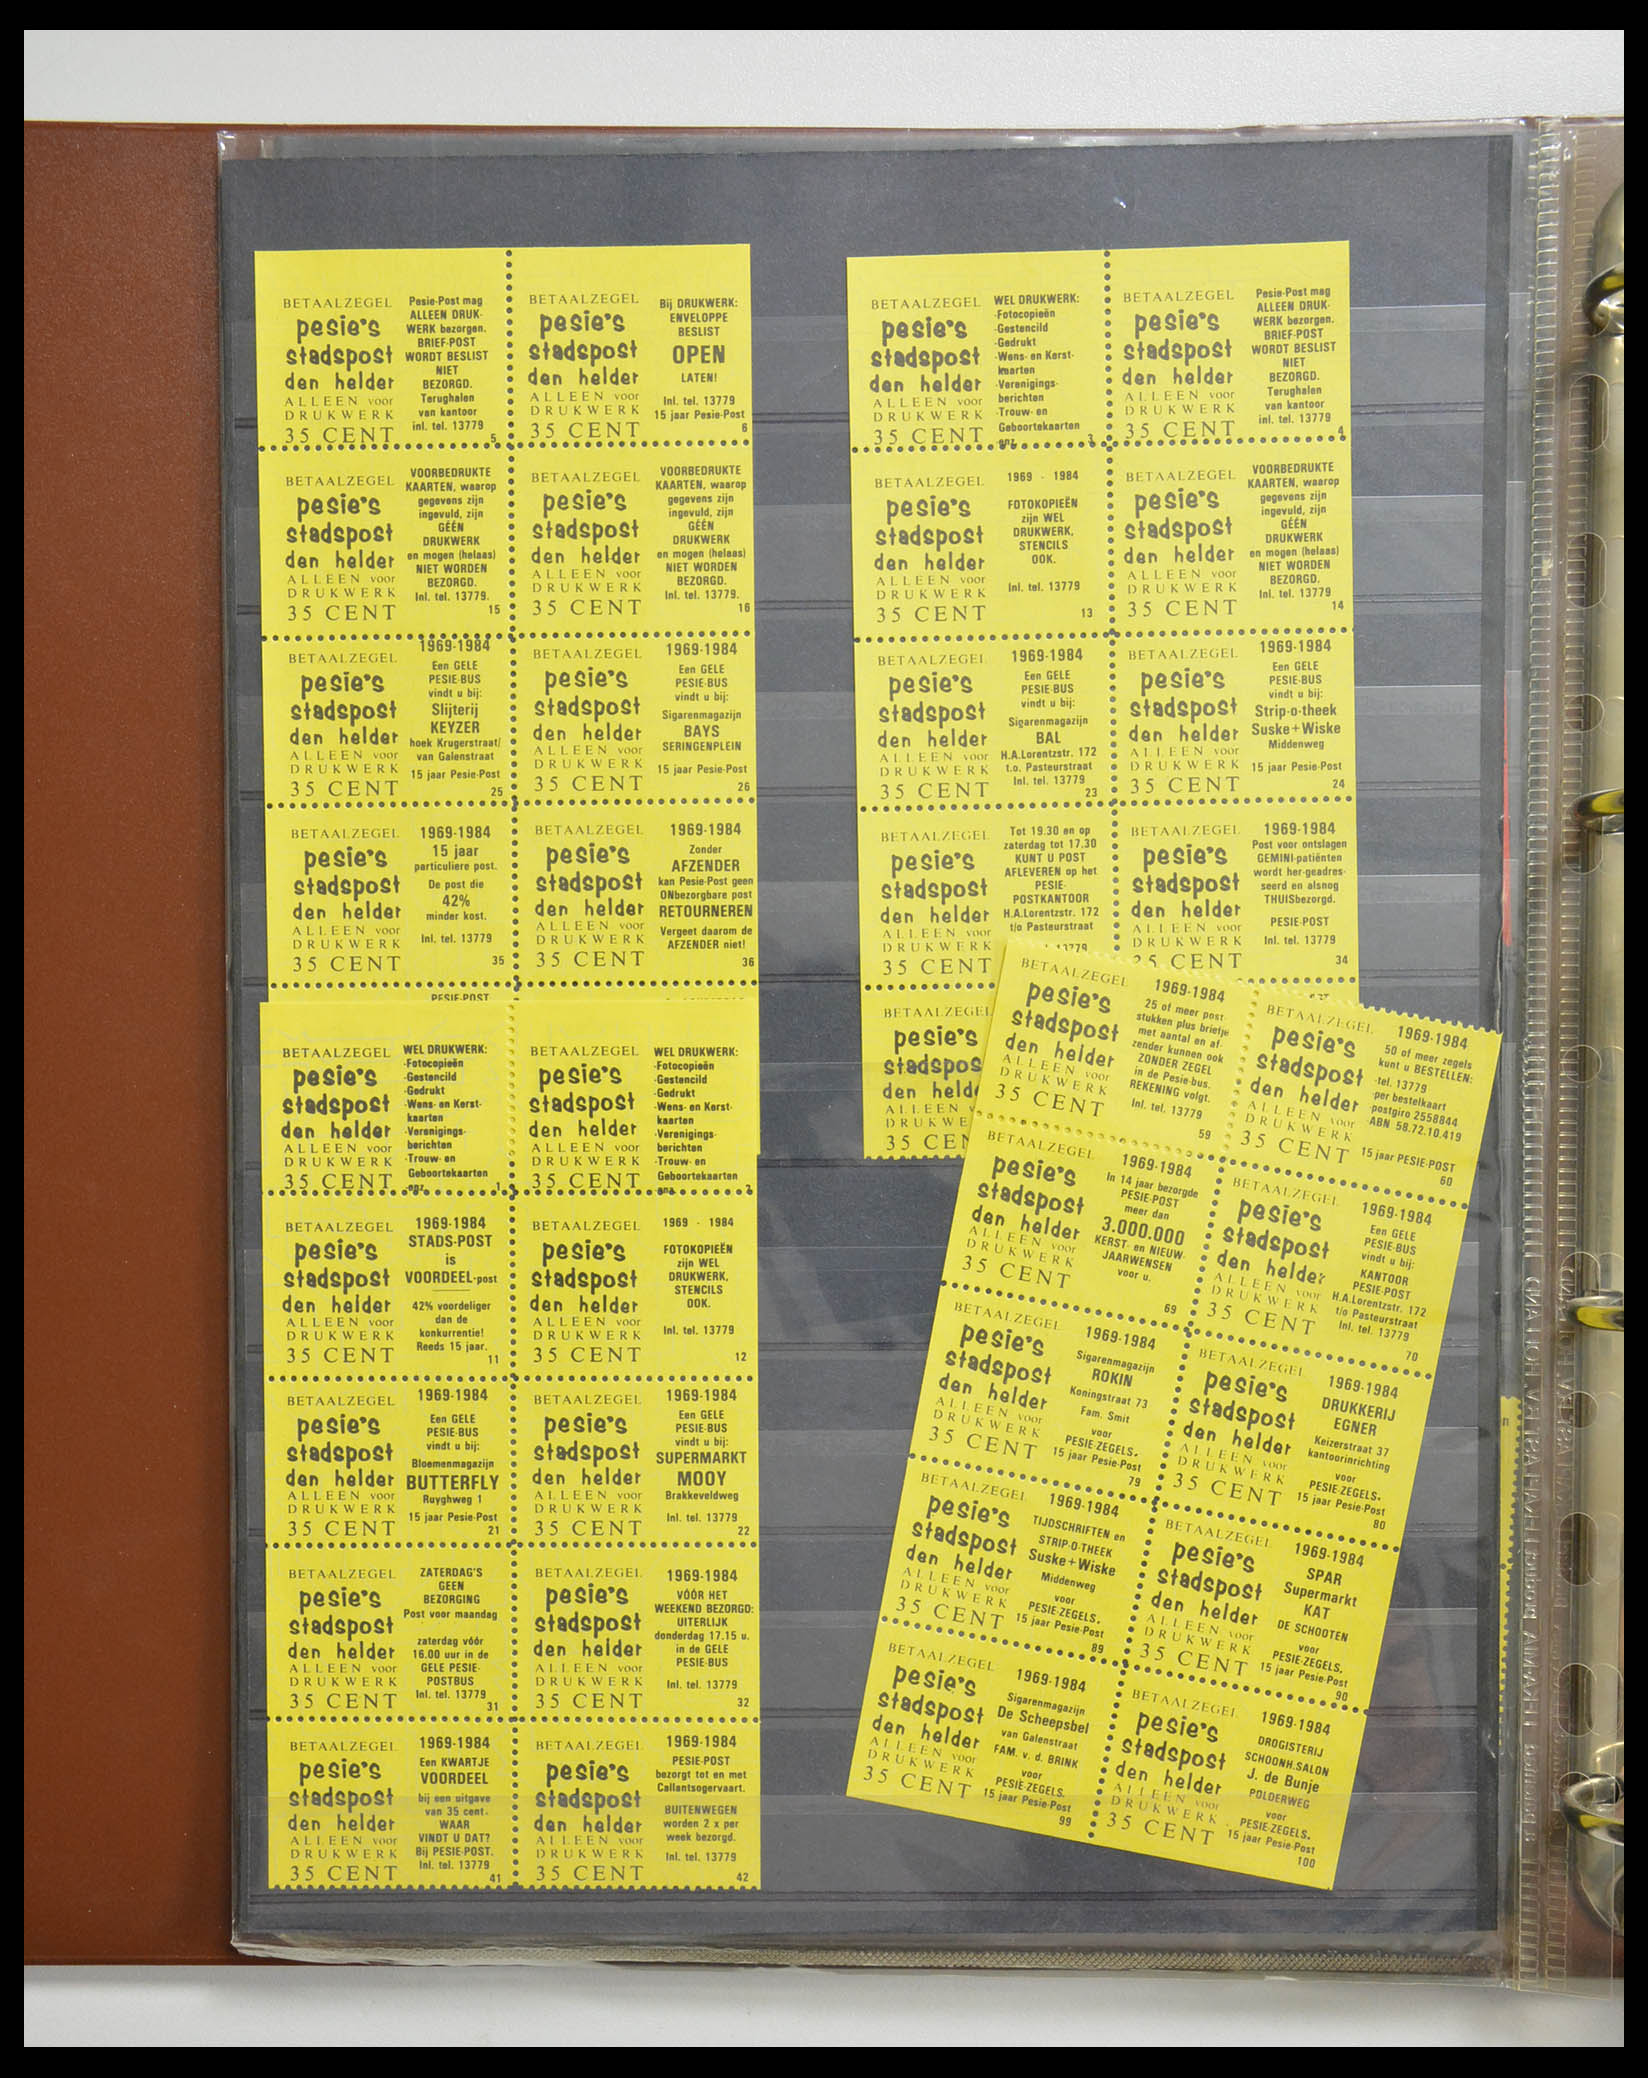 BETAALZEGEL
pesie's
stadspost
den helder
ALLEEN voor
DRUKWERK
35 CENT
Pesie-Post mag
ALLEEN DRUK-
WERK bezorgen.
BRIEF-POST
WORDT BESLIST
NIET
BEZORGD.
Terughalen
van kantoor
inl. tel. 13779
5
BETAALZEGEL
pesie's
stadspost
den helder
ALLEEN voor
DRUKWERK
35 CENT
Bij DRUKWERK:
ENVELOPPE
BESLIST
OPEN
LATEN!
Inl. tel. 13779
15 jaar Pesie-Post
6
BETAALZEGEL
pesie's
stadspost
den helder
ALLEEN voor
DRUKWERK
35 CENT
VOORBEDRUKTE
KAARTEN, waarop
gegevens zijn
ingevuld, zijn
GÉÉN
DRUKWERK
en mogen (helaas)
NIET WORDEN
BEZORGD.
Inl. tel. 13779.
15
BETAALZEGEL
pesie's
stadspost
den helder
ALLEEN voor
DRUKWERK
35 CENT
VOORBEDRUKTE
KAARTEN, waarop
gegevens zijn
ingevuld, zijn
GÉÉN
DRUKWERK
en mogen (helaas)
NIET WORDEN
BEZORGD.
Inl. tel. 13779.
16
BETAALZEGEL
pesie's
stadspost
den helder
ALLEEN voor
DRUKWERK
35 CENT
1969-1984
Een GELE
PESIE-BUS
vindt u bij:
Slijterij
KEYZER
hoek Krugerstraat/
van Galenstraat
15 jaar Pesie-Post
25
BETAALZEGEL
pesie's
stadspost
den helder
ALLEEN voor
DRUKWERK
35 CENT
1969-1984
Een GELE
PESIE-BUS
vindt u bij:
Sigarenmagazijn
BAYS
SERINGENPLEIN
15 jaar Pesie-Post
26
BETAALZEGEL
pesie's
stadspost
den helder
ALLEEN voor
DRUKWERK
35 CENT
1969-1984
15 jaar
particuliere post.
De post die
42%
minder kost.
Inl. tel. 13779
35
BETAALZEGEL
pesie's
stadspost
den helder
ALLEEN voor
DRUKWERK
35 CENT
1969-1984
Zonder
AFZENDER
kan Pesie-Post geen
ONbezorgbare post
RETOURNEREN
Vergeet daarom de
AFZENDER niet!
36
PESIE-POST
BETAALZEGEL
pesie's
stadspost
den helder
ALLEEN voor
DRUKWERK
35 CENT
WEL DRUKWERK:
-Fotocopieën
-Gestencild
-Gedrukt
-Wens- en Kerst-
kaarten
-Verenigings-
berichten
-Trouw- en
Geboortekaarten
enz.
1
BETAALZEGEL
pesie's
stadspost
den helder
ALLEEN voor
DRUKWERK
35 CENT
WEL DRUKWERK:
-Fotocopieën
-Gestencild
-Gedrukt
-Wens- en Kerst-
kaarten
-Verenigings-
berichten
-Trouw- en
Geboortekaarten
enz.
2
BETAALZEGEL
pesie's
stadspost
den helder
ALLEEN voor
DRUKWERK
35 CENT
1969-1984
STADS-POST
is
VOORDEEL-post
42% voordeliger
dan de
konkurrentie!
Reeds 15 jaar.
11
BETAALZEGEL
pesie's
stadspost
den helder
ALLEEN voor
DRUKWERK
35 CENT
1969 - 1984
FOTOKOPIEËN
zijn WEL
DRUKWERK,
STENCILS
OOK.
Inl. tel. 13779
12
BETAALZEGEL
pesie's
stadspost
den helder
ALLEEN voor
DRUKWERK
35 CENT
1969-1984
Een GELE
PESIE-BUS
vindt u bij:
Bloemenmagazijn
BUTTERFLY
Ruyghweg 1
15 jaar Pesie-Post
21
BETAALZEGEL
pesie's
stadspost
den helder
ALLEEN voor
DRUKWERK
35 CENT
1969-1984
Een GELE
PESIE-BUS
vindt u bij:
SUPERMARKT
MOOY
Brakkeveldweg
Inl. tel. 13779
22
BETAALZEGEL
pesie's
stadspost
den helder
ALLEEN voor
DRUKWERK
35 CENT
ZATERDAG'S
GEEN
BEZORGING
Post voor maandag
zaterdag vóór
16.00 uur in de
GELE PESIE-
POSTBUS
Inl. tel. 13779
31
BETAALZEGEL
pesie's
stadspost
den helder
ALLEEN voor
DRUKWERK
35 CENT
1969-1984
VÓÓR HET
WEEKEND BEZORGD:
UITERLIJK
donderdag 17.15 u.
in de GELE
PESIE-BUS
Inl. tel. 13779
32
BETAALZEGEL
pesie's
stadspost
den helder
ALLEEN voor
DRUKWERK
35 CENT
1969-1984
Een KWARTJE
VOORDEEL
bij een uitgave
van 35 cent.
WAAR
VINDT U DAT?
Bij PESIE-POST.
Inl. tel. 13779
41
BETAALZEGEL
pesie's
stadspost
den helder
ALLEEN voor
DRUKWERK
35 CENT
1969-1984
PESIE-POST
bezorgt tot en met
Callantsogervaart.
BUITENWEGEN
worden 2 x per
week bezorgd.
Inl. tel. 13779
42
BETAALZEGEL
pesie's
stadspost
den helder
ALLEEN voor
DRUKWERK
35 CENT
WEL DRUKWERK:
-Fotocopieën
-Gestencild
-Gedrukt
-Wens- en Kerst-
kaarten
-Verenigings-
berichten
-Trouw- en
Geboortekaarten
enz.
3
BETAALZEGEL
pesie's
stadspost
den helder
ALLEEN voor
DRUKWERK
35 CENT
Pesie-Post mag
ALLEEN DRUK-
WERK bezorgen.
BRIEF-POST
WORDT BESLIST
NIET
BEZORGD.
Terughalen
van kantoor
inl. tel. 13779
4
BETAALZEGEL
pesie's
stadspost
den helder
ALLEEN voor
DRUKWERK
35 CENT
1969 - 1984
FOTOKOPIEËN
zijn WEL
DRUKWERK,
STENCILS
OOK.
Inl. tel. 13779
13
BETAALZEGEL
pesie's
stadspost
den helder
ALLEEN voor
DRUKWERK
35 CENT
VOORBEDRUKTE
KAARTEN, waarop
gegevens zijn
ingevuld, zijn
GÉÉN
DRUKWERK
en mogen (helaas)
NIET WORDEN
BEZORGD.
Inl. tel. 13779
14
BETAALZEGEL
pesie's
stadspost
den helder
ALLEEN voor
DRUKWERK
35 CENT
1969-1984
Een GELE
PESIE-BUS
vindt u bij:
Sigarenmagazijn
BAL
H.A.Lorentzstr. 172
t.o. Pasteurstraat
Inl. tel. 13779
23
BETAALZEGEL
pesie's
stadspost
den helder
ALLEEN voor
DRUKWERK
35 CENT
1969-1984
Een GELE
PESIE-BUS
vindt u bij:
Strip-o-theek
Suske+Wiske
Middenweg
15 jaar Pesie-Post
24
BETAALZEGEL
pesie's
stadspost
den helder
ALLEEN voor
DRUKWERK
35 CENT
Tot 19.30 en op
zaterdag tot 17.30
KUNT U POST
AFLEVEREN op het
PESIE-
POSTKANTOOR
H.A.Lorentzstr. 172
t/o Pasteurstraat
13779
BETAALZEGEL
pesie's
stadspost
den helder
ALLEEN voor
DRUKWERK
35 CENT
1969-1984
Post voor ontslagen
GEMINI-patiënten
wordt her-geadres-
seerd en alsnog
THUISbezorgd.
PESIE-POST
Inl. tel. 13779
34
BETAALZEGEL
pesie's
stadspos
den held
ALLEEN
DRUKWE
35 CEN
BETAALZEGEL
pesie's
stadspost
den helder
ALLEEN voor
DRUKWERK
35 CENT
1969-1984
25 of meer post-
stukken plus briefje
met aantal en af-
zender kunnen ook
ZONDER ZEGEL
in de Pesie-bus.
REKENING volgt.
Inl. tel. 13779
59
BETAALZEGEL
pesie's
stadspost
den helder
ALLEEN voor
DRUKWERK
35 CENT
1969-1984
50 of meer zegels
kunt u BESTELLEN:
-tel. 13779
-per bestelkaart
-postgiro 2558844
ABN 58.72.10.419
15 jaar PESIE-POST
60
BETAALZEGEL
pesie's
stadspost
den helder
ALLEEN voor
DRUKWERK
35 CENT
1969-1984
In 14 jaar bezorgde
PESIE-POST
meer dan
3.000.000
KERST- en NIEUW-
JAARWENSEN
voor u.
69
BETAALZEGEL
pesie's
stadspost
den helder
ALLEEN voor
DRUKWERK
35 CENT
1969-1984
Een GELE
PESIE-BUS
vindt u bij:
KANTOOR
PESIE-POST
H.A.Lorentzstr. 172
t/o Pasteurstraat
Inl. tel. 13779
70
BETAALZEGEL
pesie's
stadspost
den helder
ALLEEN voor
DRUKWERK
35 CENT
1969-1984
Sigarenmagazijn
ROKIN
Koningstraat 73
Fam. Smit
voor
PESIE-ZEGELS.
15 jaar Pesie-Post
79
BETAALZEGEL
pesie's
stadspost
den helder
ALLEEN voor
DRUKWERK
35 CENT
1969-1984
DRUKKERIJ
EGNER
Keizerstraat 37
kantoorinrichting
voor
PESIE-ZEGELS.
15 jaar Pesie-Post
80
BETAALZEGEL
pesie's
stadspost
den helder
ALLEEN voor
DRUKWERK
35 CENT
1969-1984
TIJDSCHRIFTEN en
STRIP-O-THEEK
Suske+Wiske
Middenweg
voor
PESIE-ZEGELS.
15 jaar Pesie-Post
89
BETAALZEGEL
pesie's
stadspost
den helder
ALLEEN voor
DRUKWERK
35 CENT
1969-1984
SPAR
Supermarkt
KAT
DE SCHOOTEN
voor
PESIE-ZEGELS.
15 jaar Pesie-Post
90
BETAALZEGEL
pesie's
stadspost
den helder
ALLEEN voor
DRUKWERK
35 CENT
1969-1984
Sigarenmagazijn
De Scheepsbel
van Galenstraat
FAM. v. d. BRINK
voor
PESIE-ZEGELS.
15 jaar Pesie-Post
99
BETAALZEGEL
pesie's
stadspost
den helder
ALLEEN voor
DRUKWERK
35 CENT
1969-1984
DROGISTERIJ
SCHOONH.SALON
J. de Bunje
POLDERWEG
voor
PESIE-ZEGELS.
15 jaar Pesie-Post
100